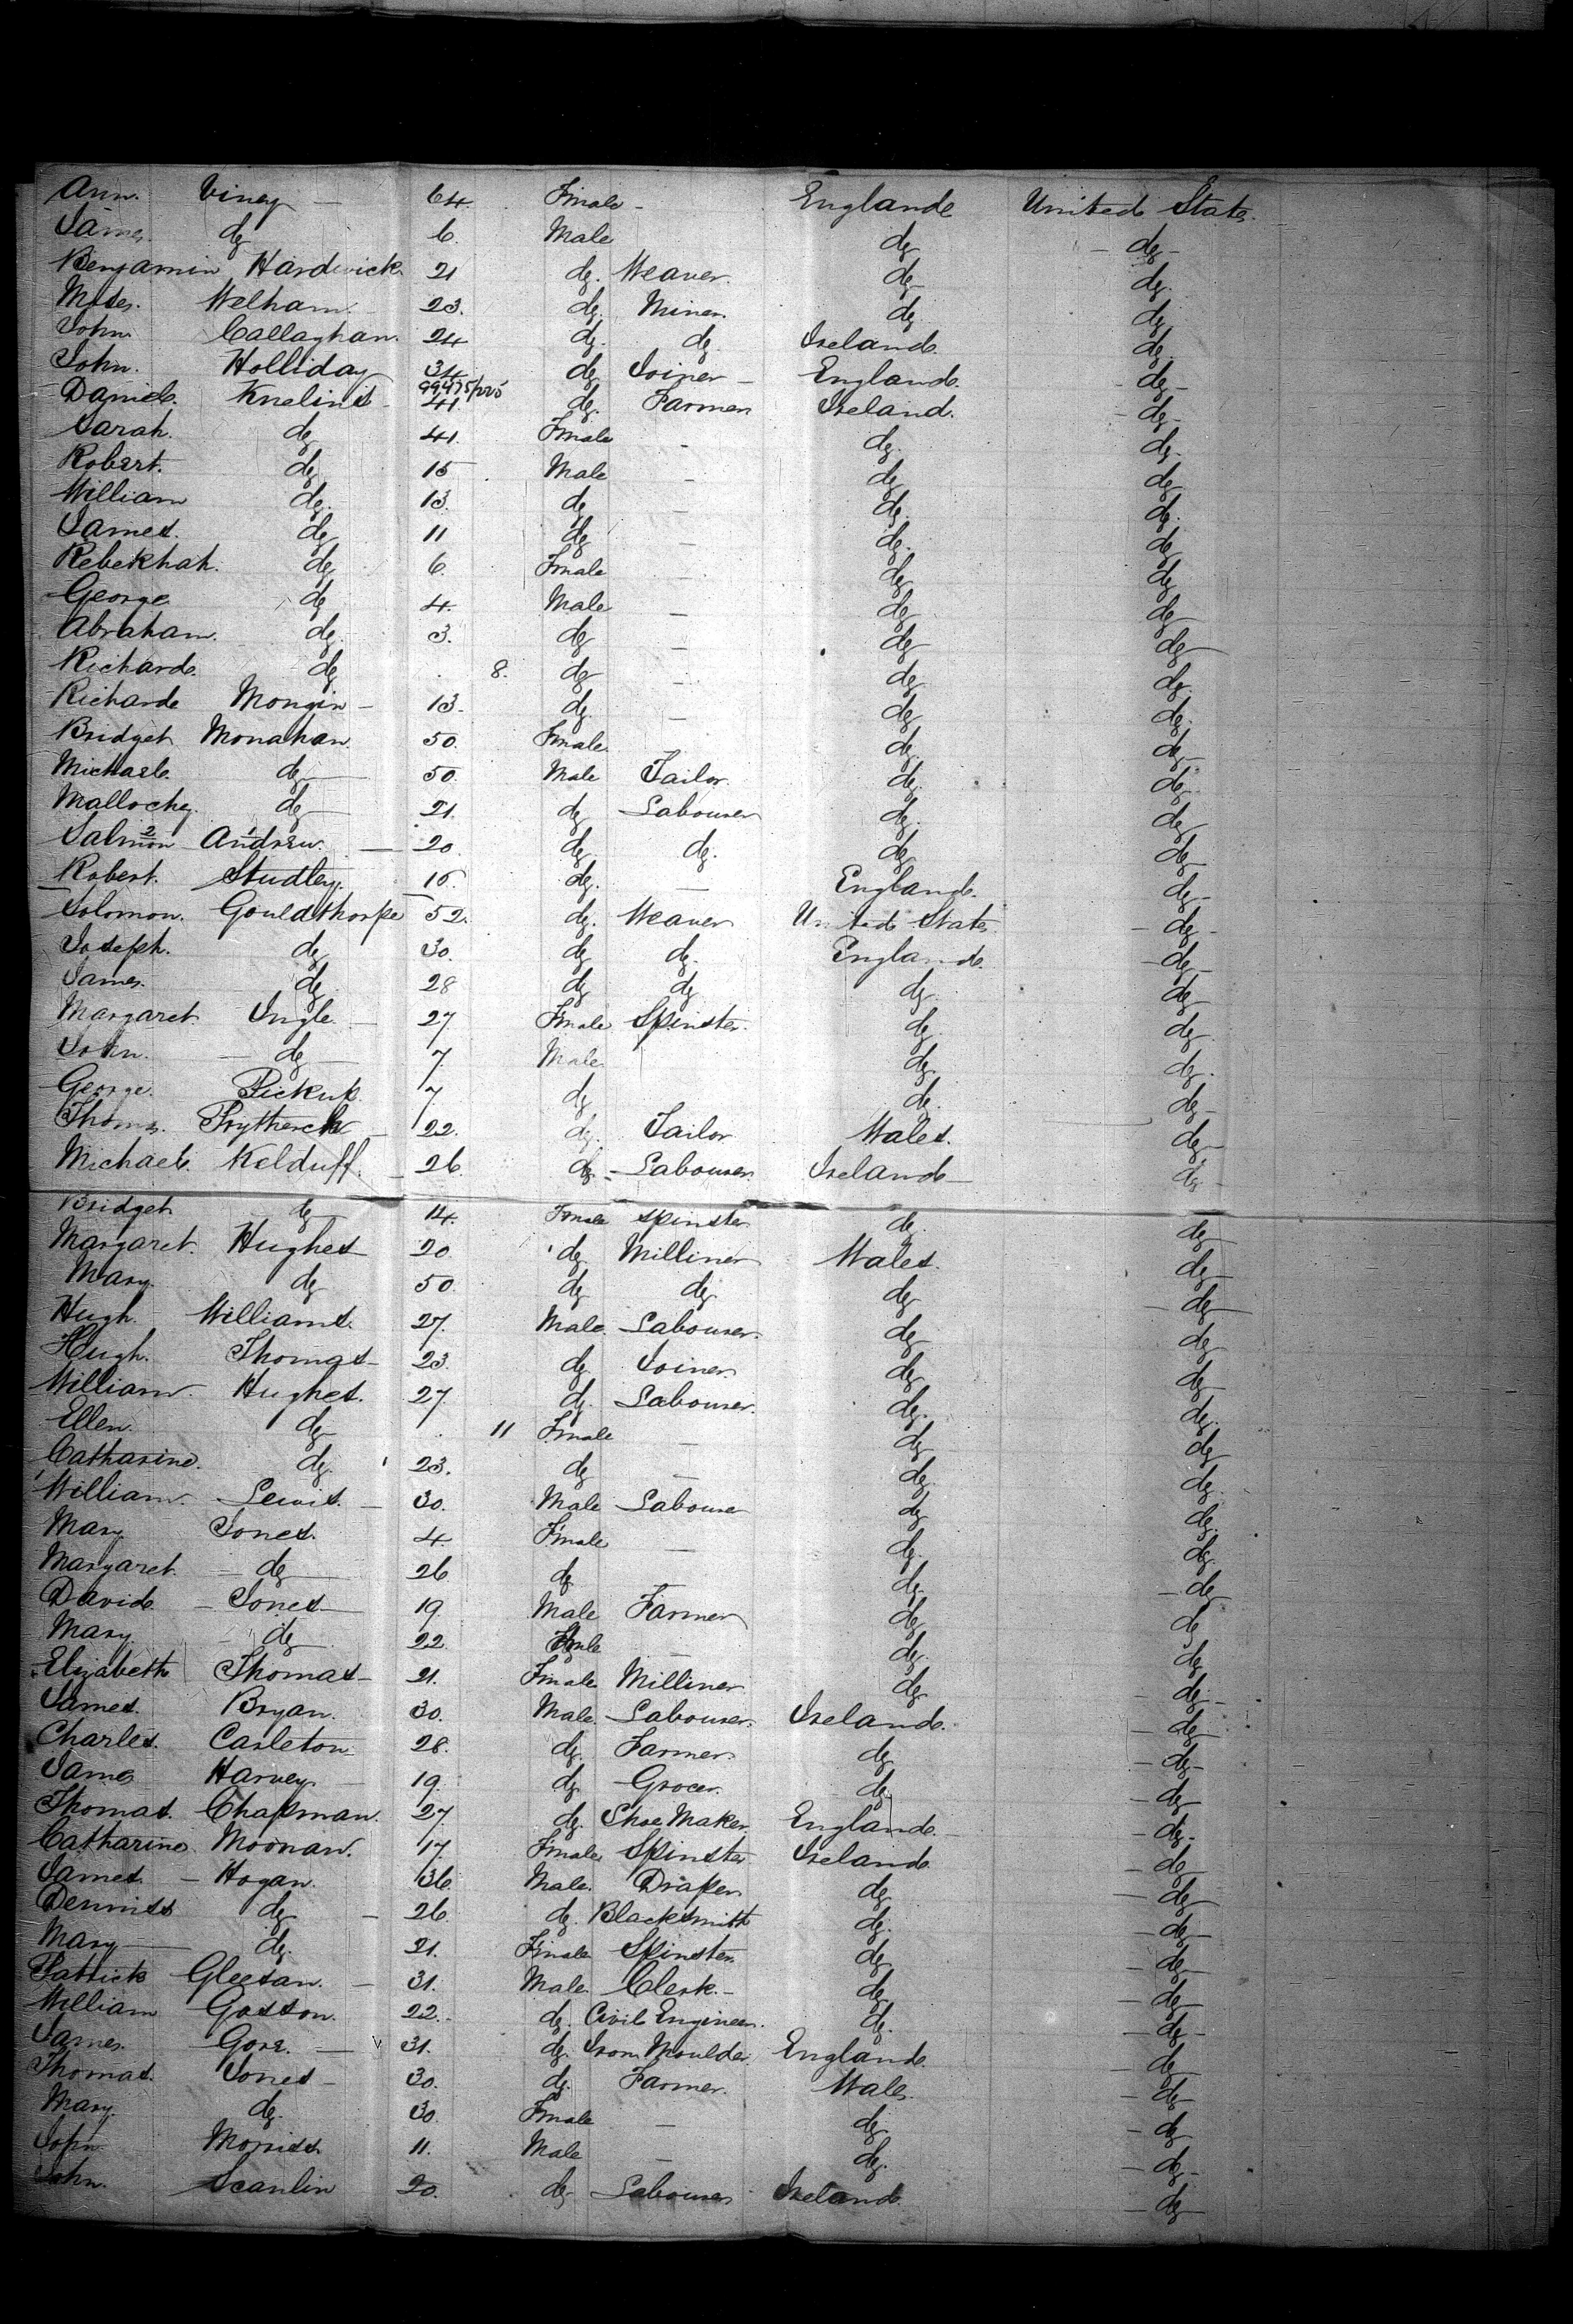 Ann. Viney — 64. Female - England United States.
James do 6. Male do do
Benjamin Hardwick 21 do. Weaver. do do.
Moses. Welham. 23. do. Miner. do do
John Callaghan. 24 do. do. Ireland. do.
John. Holliday 34 do Joiner England. do
Daniel. Knelins 41. do. Farmer Ireland. do
Sarah. do 41. Female - do. do.
Robert. do 15 Male - do do
William do. 13. do - do. do.
James. do 11 do - do. do
Rebekhah. do 6. Female - do do
George do 4. Male - do do
Abraham. do. 3. do - do do
Richard. do 8. do - do do.
Richard Mongin - 13. do. - do do.
Bridget Monahan. 50. Female. do. do
Michael. do 50. Male Tailor. do. do.
Mallochy. do 21. do Labourer do. do
Salmon 2 Andrew. 1 20. do do. do do
Robert. Studley. 15. do. — England. do
Solomon. Gouldthorpe 52. do. Weaver United States do
Joseph. do 30. do do. England. do
James. do. 28 do do do. do
Margaret. Ingle 27 Female Spinster. do. do
John. do 7. Male. do. do.
George. Pickup. 7 do do. do
Thomas. Prytherch 22. do. Tailor Wales. do
Michael. Kelduff. 26. do. Labourer. Ireland do
Bridget do 14. Female Spinster do. do
Margaret. Hughes 20. do Milliner Wales. do
Mary. do 50. do do do do
Hugh. Williams. 27. Male. Labourer. do do
Hugh. Thomas 23. do Joiner. do do
William. Hughes. 27. do. Labourer. do. do.
Ellen. do 11 Female — do do
Catharine. do. 23. do — do. do.
William. Lewis. 30. Male Labourer do do.
Mary Jones. 4. Female — do. do.
Margaret. do 26. do do. do
David. Jones 19. Male Farmer do do
Mary do 22. Female — do. do
Elizabeth Thomas 21. Female Milliner do do.
James. Bryan. 30. Male. Labourer. Ireland. do
Charles. Carleton 28. do. Farmer. do do
James Harvey. 19. do. Grocer. do. do
Thomas. Chapman. 27. do. Shoe Maker England. do.
Catharine Moonan. 17. Female Spinster Ireland. do
James. Hogan. 36 Male. Draper. do do
Denniss do 26. do. Blacksmith do. do
Mary do. 21. Female Spinster. do do
Patrick Gleesan. 31. Male. Clerk. do do
William Gasson. 22. do. Civil Engineer. do. do
James. Gore. 31. do. Iron Moulder. England. do
Thomas. Jones 30. do. Farmer. Wales. do
Mary. do. 30. Female — do. do
John Morriss 11. Male — do. do
John. Scanlin 20. do Labourer Ireland. do